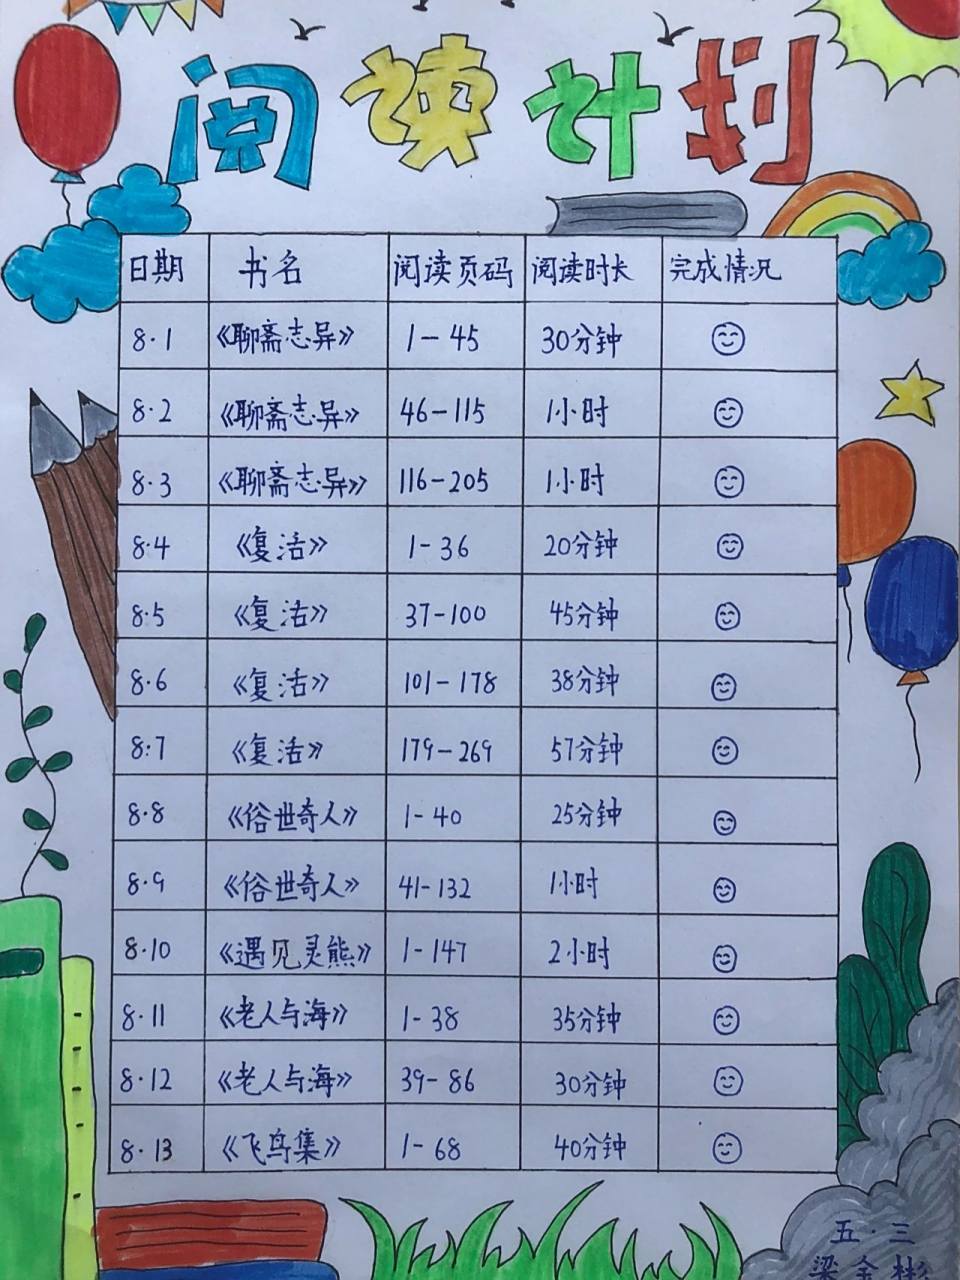 阅读计划
日期 书名 阅读页码 阅读时长 完成情况
8·1 《聊斋志异》 1-45 30分钟
8·2 《聊斋志异》 46-115 1小时
8·3 《聊斋志异》 116-205 1小时
8·4 《复活》 1-36 20分钟
8·5 《复活》 37-100 45分钟
8·6 《复活》 101-178 38分钟
8·7 《复活》 179-269 57分钟
8·8 《俗世奇人》 1-40 25分钟
8·9 《俗世奇人》 41-132 1小时
8·10 《遇见灵熊》 1-147 2小时
8·11 《老人与海》 1-38 35分钟
8·12 《老人与海》 39-86 30分钟
8·13 《飞鸟集》 1-68 40分钟
五·三